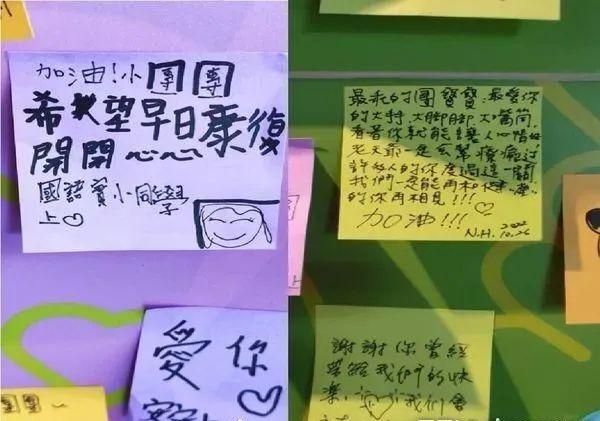 加油!小團團
希望早日康復
開開心心
國語實小同學
上♡
愛你
♡
團團~
最乖的團寶寶,最愛你
的大 大脚脚,大嘴筒,
看著你就能讓人心情好
老天爺一定會幫療癒過
許多人的你度過這一關
我們一定能再和健康
的你再相見!!!♡
加油!!!
N.H. 2022 10.26
謝謝你曾經
帶給我們的快
樂, 我們會